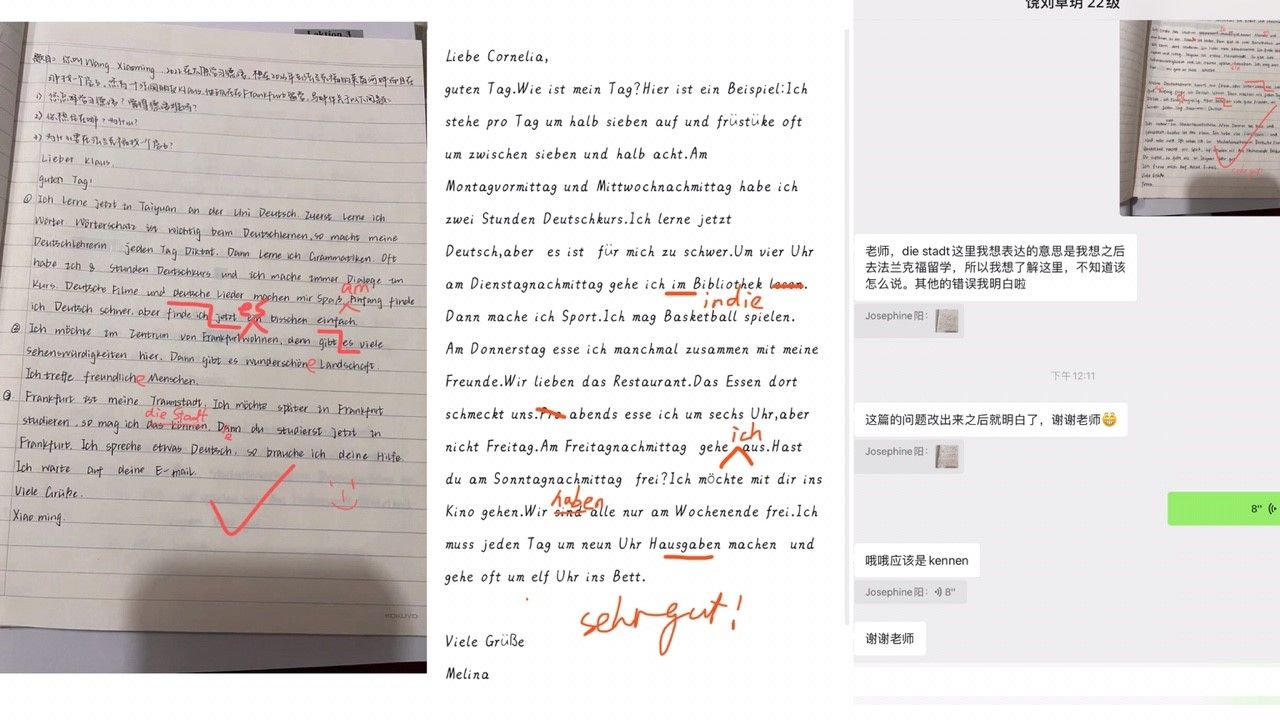 Lektion 3
Lieber Klaus,
guten Tag!
① Ich lerne jetzt in Taiyuan an der Uni Deutsch. Zuerst lerne ich
Wörter. Wörterschatz ist wichtig beim Deutschlernen, so macht meine
Deutschlehrerin jeden Tag Diktat. Dann lerne ich Grammatiken. Oft
habe ich 8 Stunden Deutschkurs und ich mache immer Dialoge im
Kurs. Deutsche Filme und deutsche Lieder machen mir Spaß. Anfang finde
am
ich Deutsch schwer, aber finde ich jetzt ein bisschen einfach.
es
② Ich möchte im Zentrum von Frankfurt wohnen, denn gibt es viele
Sehenswürdigkeiten hier. Dann gibt es wunderschöne Landschaft.
Ich treffe freundliche Menschen.
③ Frankfurt ist meine Traumstadt. Ich möchte später in Frankfurt
die Stadt
studieren, so mag ich das können. Denn du studierst jetzt in
Frankfurt. Ich spreche etwas Deutsch, so brauche ich deine Hilfe.
Ich warte auf deine E-mail.
Viele Grüße.
Xiao ming.
KOKUYO
Liebe Cornelia,
guten Tag.Wie ist mein Tag?Hier ist ein Beispiel:Ich
stehe pro Tag um halb sieben auf und früstüke oft
um zwischen sieben und halb acht.Am
Montagvormittag und Mittwochnachmittag habe ich
zwei Stunden Deutschkurs.Ich lerne jetzt
Deutsch,aber es ist für mich zu schwer.Um vier Uhr
am Dienstagnachmittag gehe ich im Bibliothek lesen.
in die
Dann mache ich Sport.Ich mag Basketball spielen.
Am Donnerstag esse ich manchmal zusammen mit meine
Freunde.Wir lieben das Restaurant.Das Essen dort
schmeckt uns.Pro abends esse ich um sechs Uhr,aber
ich
nicht Freitag.Am Freitagnachmittag gehe aus.Hast
du am Sonntagnachmittag frei?Ich möchte mit dir ins
haben
Kino gehen.Wir sind alle nur am Wochenende frei.Ich
muss jeden Tag um neun Uhr Hausgaben machen und
gehe oft um elf Uhr ins Bett.
sehr gut!
Viele Grüße
Melina
饶刘草玥 22级
老师，die stadt这里我想表达的意思是我想之后
去法兰克福留学，所以我想了解这里，不知道该
怎么说。其他的错误我明白啦
Josephine阳：
下午12:11
这篇的问题改出来之后就明白了，谢谢老师😁
Josephine阳：
8"
哦哦应该是kennen
Josephine阳： 8"
谢谢老师